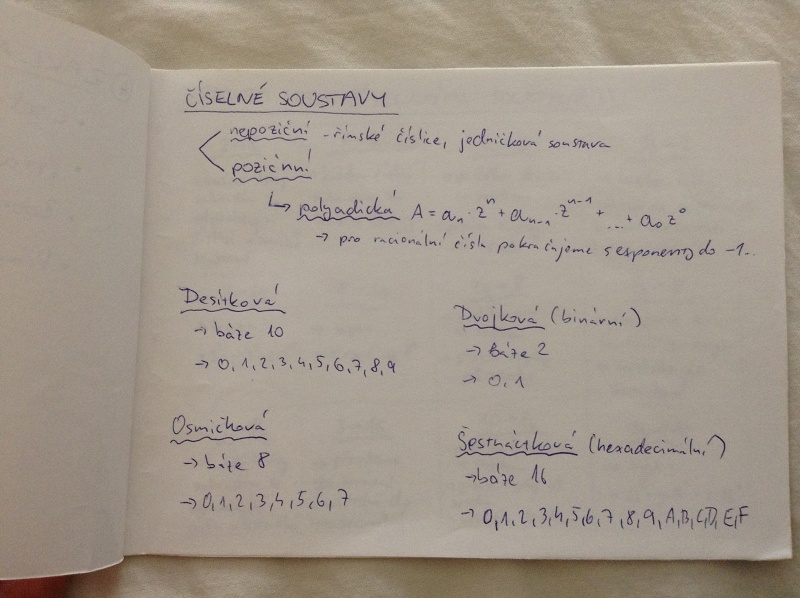 ČÍSELNÉ SOUSTAVY
nepoziční - římské číslice, jedničková soustava
poziční
↳ polyadická A = aₙ·zⁿ + aₙ₋₁·zⁿ⁻¹ + ... + a₀z⁰
→ pro racionální čísla pokračujeme s exponenty do -1..
Desítková
→ báze 10
→ 0,1,2,3,4,5,6,7,8,9
Dvojková (binární)
→ báze 2
→ 0,1
Osmičková
→ báze 8
→ 0,1,2,3,4,5,6,7
Šestnáctková (hexadecimální)
→ báze 16
→ 0,1,2,3,4,5,6,7,8,9,A,B,C,D,E,F